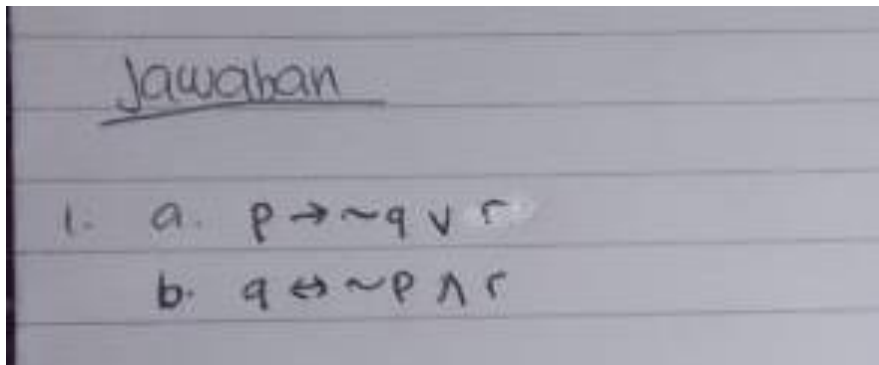 Jawaban
1. a. p → ~q ∨ r
b. q ↔ ~p ∧ r